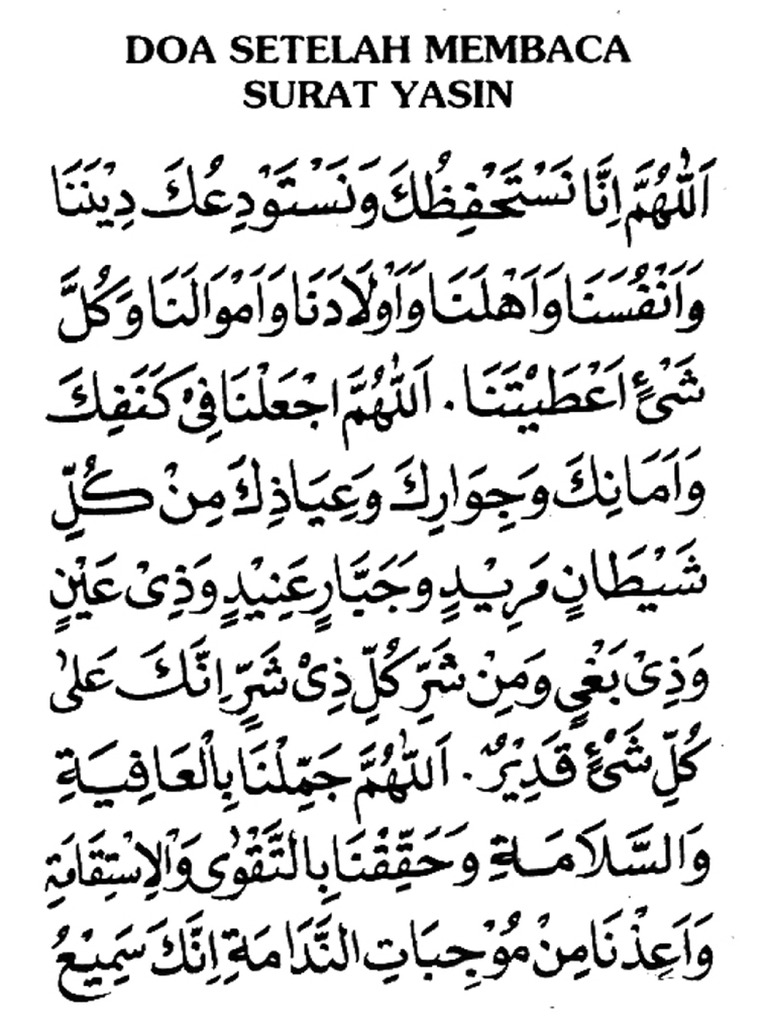 DOA SETELAH MEMBACA
SURAT YASIN
اَللّٰهُمَّ اِنَّا نَسْتَحْفِظُكَ وَنَسْتَوْدِعُكَ دِيْنَنَا
وَاَنْفُسَنَا وَاَهْلَنَا وَاَوْلَادَنَا وَاَمْوَالَنَا وَكُلَّ
شَىْءٍ اَعْطَيْتَنَا . اَللّٰهُمَّ اجْعَلْنَا فِىْ كَنَفِكَ
وَاَمَانِكَ وَجِوَارِكَ وَعِيَاذِكَ مِنْ كُلِّ
شَيْطَانٍ مَرِيْدٍ وَجَبَّارٍ عَنِيْدٍ وَذِىْ عَيْنٍ
وَذِىْ بَغْيٍ وَمِنْ شَرِّ كُلِّ ذِىْ شَرٍّ اِنَّكَ عَلٰى
كُلِّ شَىْءٍ قَدِيْرٌ . اَللّٰهُمَّ جَمِّلْنَا بِالْعَافِيَةِ
وَالسَّلَامَةِ وَحَقِّقْنَا بِالتَّقْوٰى وَالْاِسْتِقَامَةِ
وَاَعِذْنَا مِنْ مُوْجِبَاتِ النَّدَامَةِ اِنَّكَ سَمِيْعُ